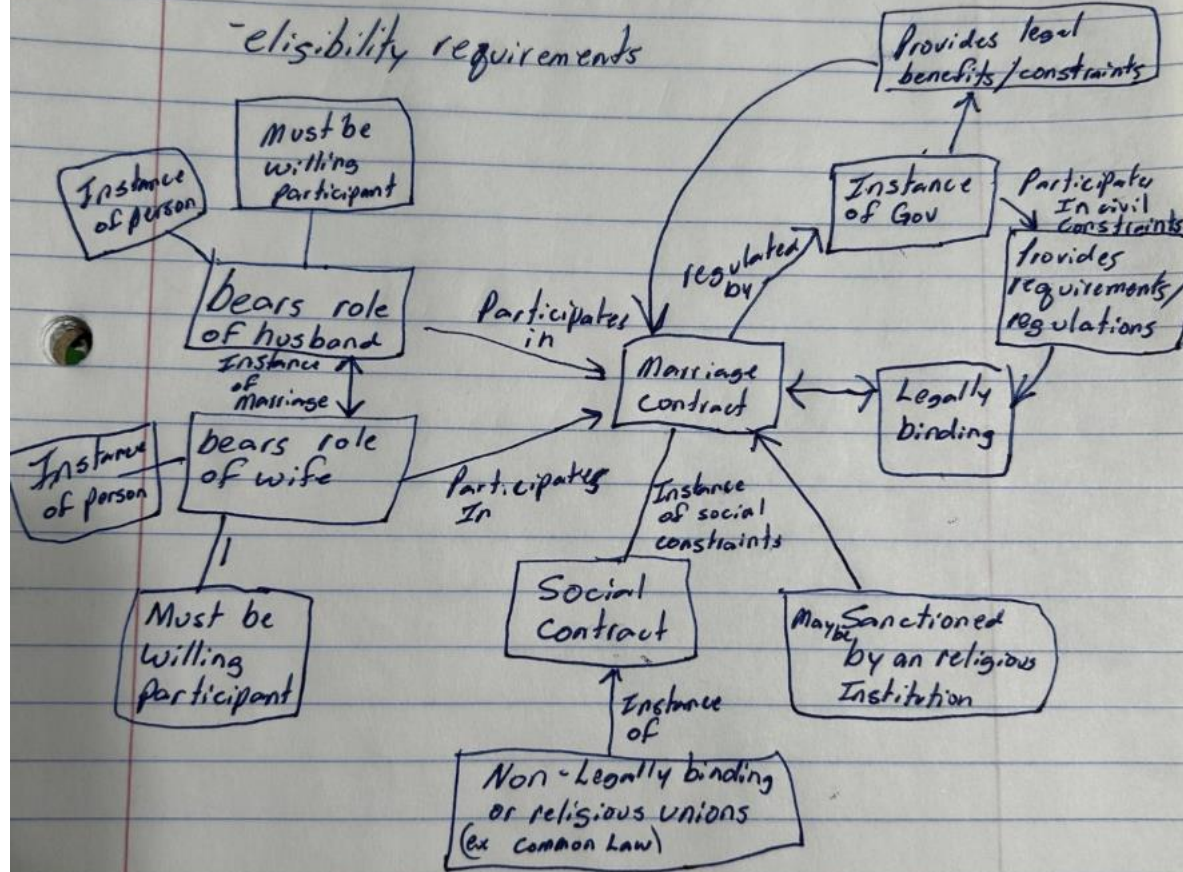 -eligibility requirements
Provides legal
benefits/constraints
Must be
willing
participant
Instance
of person
Instance
of Gov
Participates
In civil
constraints
regulated
by
Provides
requirements/
regulations
bears role
of husband
Participates
in
Instance
of
Marriage
Marriage
contract
Legally
binding
bears role
of wife
Instance
of person
Participates
In
Instance
of social
constraints
Must be
willing
participant
Social
Contract
May be Sanctioned
by an religious
Institution
Instance
of
Non-Legally binding
or religious unions
(ex Common Law)